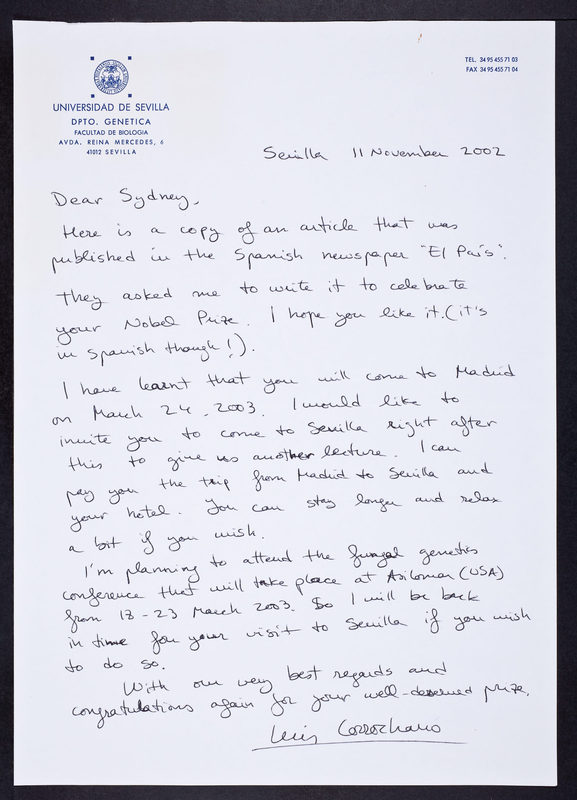 UNIVERSIDAD DE SEVILLA
DPTO. GENETICA
FACULTAD DE BIOLOGIA
AVDA. REINA MERCEDES, 6
41012 SEVILLA
TEL. 34 95 455 71 03
FAX 34 95 455 71 04
Sevilla 11 November 2002
Dear Sydney,
Here is a copy of an article that was
published in the Spanish newspaper "El País".
They asked me to write it to celebrate
your Nobel Prize. I hope you like it. (it's
in Spanish though!).
I have learnt that you will come to Madrid
on March 24, 2003. I would like to
invite you to come to Sevilla right after
this to give us another lecture. I can
pay you the trip from Madrid to Sevilla and
your hotel. You can stay longer and relax
a bit if you wish.
I'm planning to attend the fungal genetics
conference that will take place at Asilomar (USA)
from 18-23 March 2003. So I will be back
in time for your visit to Sevilla if you wish
to do so.
With our very best regards and
congratulations again for your well-deserved prize,
Luis Corrochano